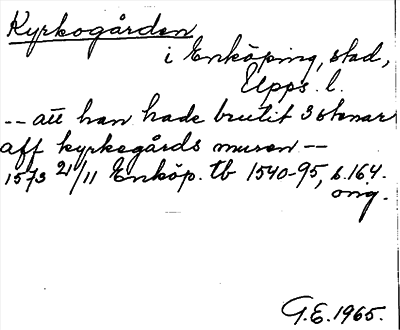 Kyrkogården
i Enköping, stad,
Upps. l.
-- att han hade brutit 3 stenar
aff kyrkegårds muren --
1573 21/11 Enköp. tb 1540-95, s. 164.
orig.
G.E. 1965.